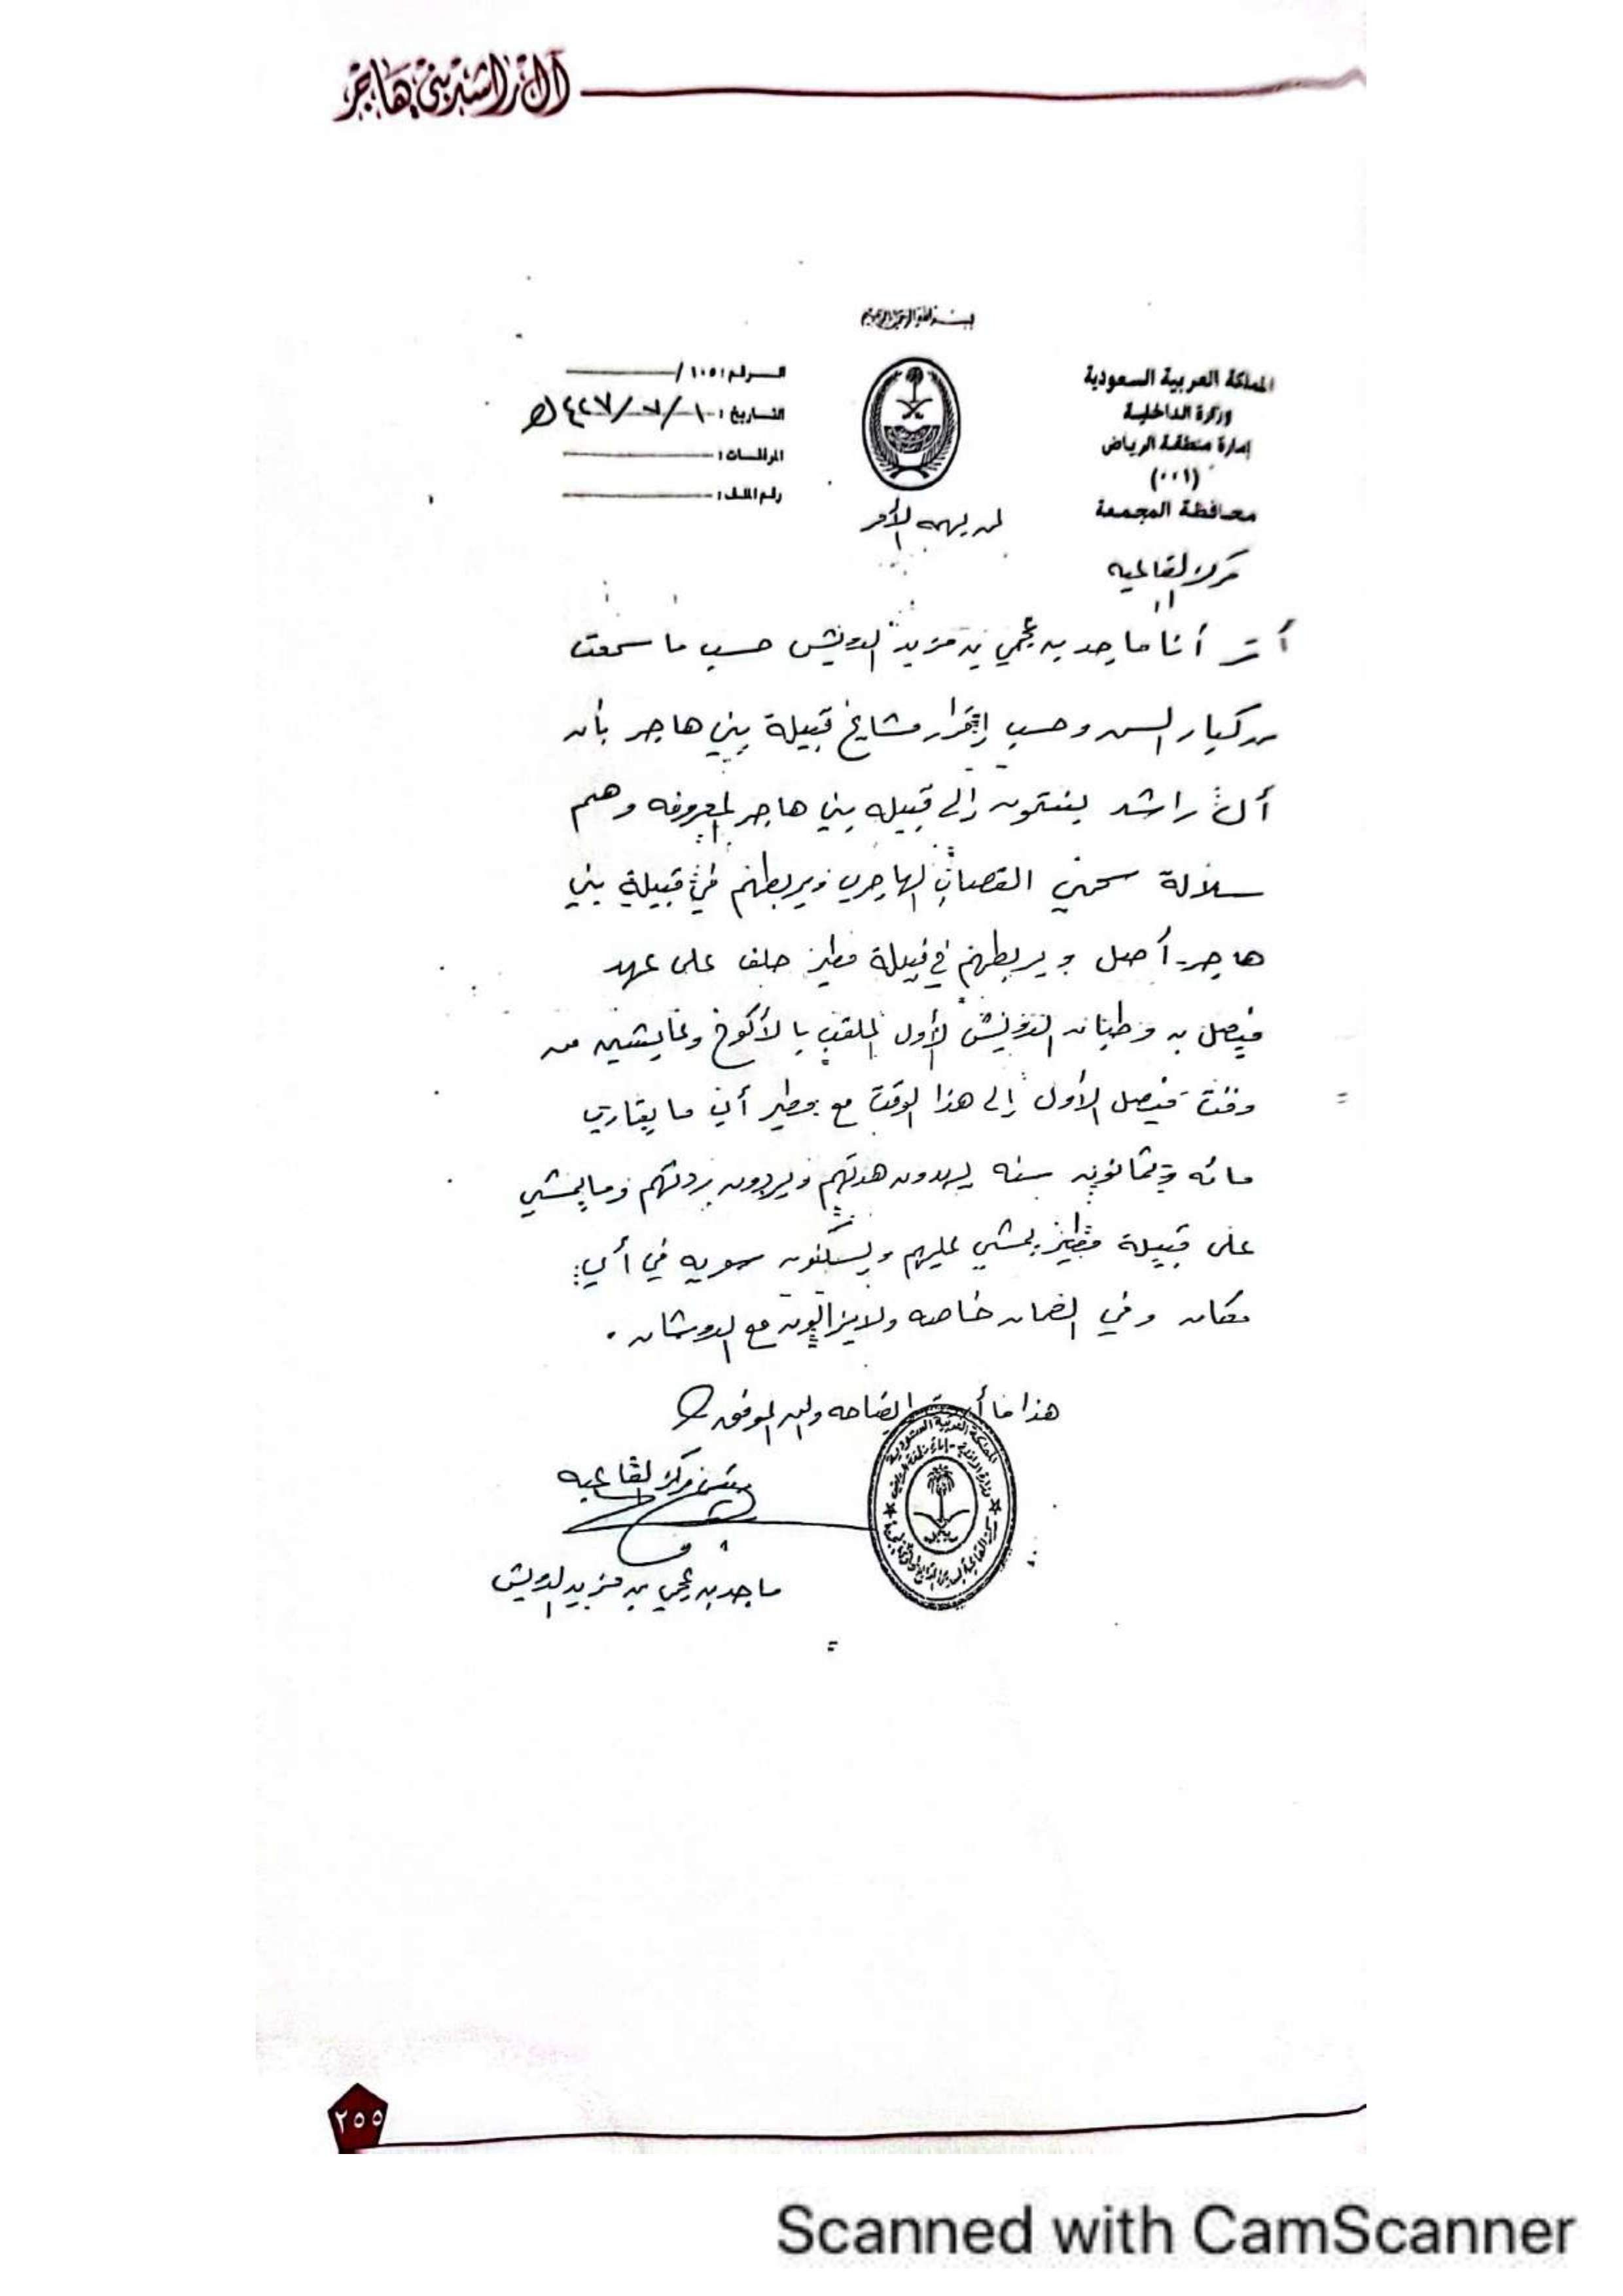 آل راشد بني هاجر
بسم الله الرحمن الرحيم
المملكة العربية السعودية
وزارة الداخلية
إمارة منطقة الرياض
(٠٠١)
محافظة المجمعة
مركز القاعيه
الرقم : ١٠٥ /
التاريخ : ١٠ / ٧ / ١٤٢٧ هـ
المرفقات :
رقم الملف :
لمن يهمه الأمر
أقر أنا ماجد بن عجمي بن مزيد الدويش حسب ما سمعت
من كبار السن وحسب إقرار مشايخ قبيلة بني هاجر بأن
آل راشد ينتمون إلى قبيله بني هاجر المعروفه وهم
سلالة سحمي القصاب الهاجري ويربطهم في قبيلة بني
هاجر أصل ويربطهم في قبيلة مطير حلف على عهد
فيصل بن وطبان الدويش الأول الملقب بالأكوخ وعايشين من
وقت فيصل الأول إلى هذا الوقت مع مطير أي ما يقارب
مائه وثمانون سنه يهدون هدتهم ويردون ردتهم وما يمشي
على قبيلة مطير يمشي عليهم ويسكنون سويه في أي
مكان وفي الضمان خاصه ولا يزالون مع الدوشان .
هذا ما أردت إيضاحه والله الموفق
رئيس مركز القاعيه
ماجد بن عجمي بن مزيد الدويش
المملكة العربية السعودية
٢٥٥
Scanned with CamScanner